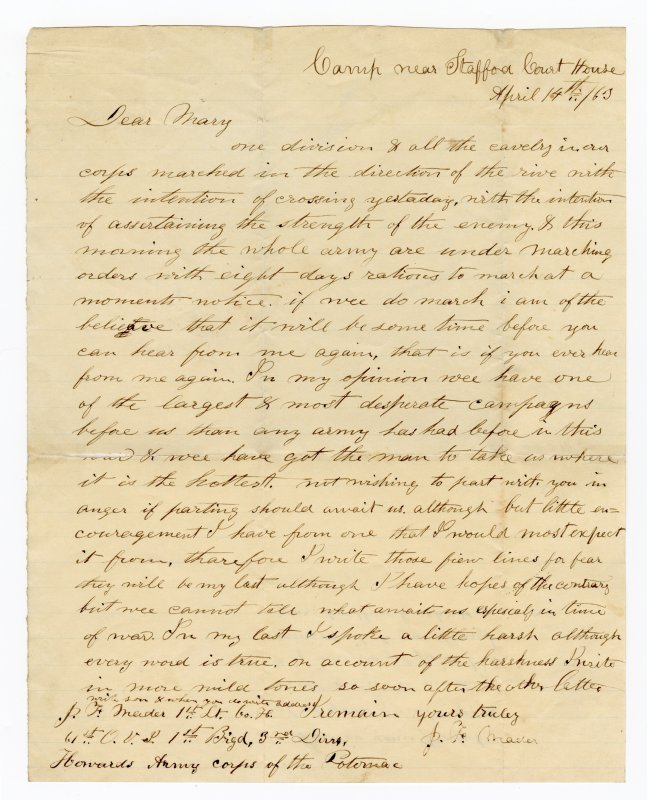 Camp near Staffod Court House
April 14th /63
Dear Mary
one division & all the cavelry in our
corps marched in the direction of the rive with
the intention of crossing yestaday, with the intention
of assertaining the strength of the enemy, & this
morning the whole army are under marching
orders with eight days rations to march at a
moments notice. if wee do march i am of the
that it will be some time before you
can hear from me again, that is if you ever hear
from me again. In my opinion wee have one
of the largest & most desperate campagns
before us than any army has had before in this
war & wee have got the man to take us where
it is the hottest. not wishing to part with you in
anger if parting should await us. although but little en=
couragement I have from one that I would most expect
it from, tharefore I write those fiew lines for fear
they will be my last although I have hopes of the contrary
but wee cannot tell what awaits us especialy in time
of war. In my last I spoke a little harsh although
every word is true. on account of the harshness I write
in more mild tones so soon after the other letter
write soon & when you do write address
J. F. Meader 1st Lt. Co. H. I remain yours truley
61st O. V. I. 1st Bigd, 3rd Divis, J. F. Meader
Howards Army corps of the Potomac